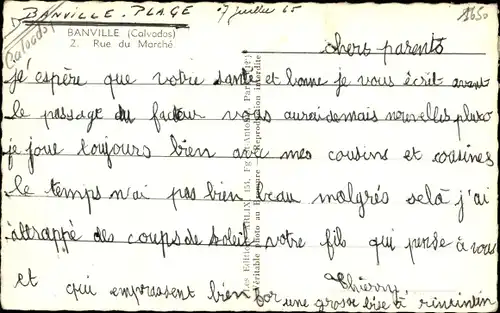 BANVILLE-PLAGE 7 juillet 65
Calvados
BANVILLE (Calvados)
2. Rue du Marché
chers parents
j'espère que votre santé et bonne je vous écrit avant
le passage du facteur vous aurai de mais nouvelles pluto
je joue toujours bien avec mes cousins et cousines
le temps n'ai pas bien beau malgrés selà j'ai
attrappé des coups de soleil votre fils qui pense à vous
et qui embrassent bien for Thierry
une grosse bise à rinrintin